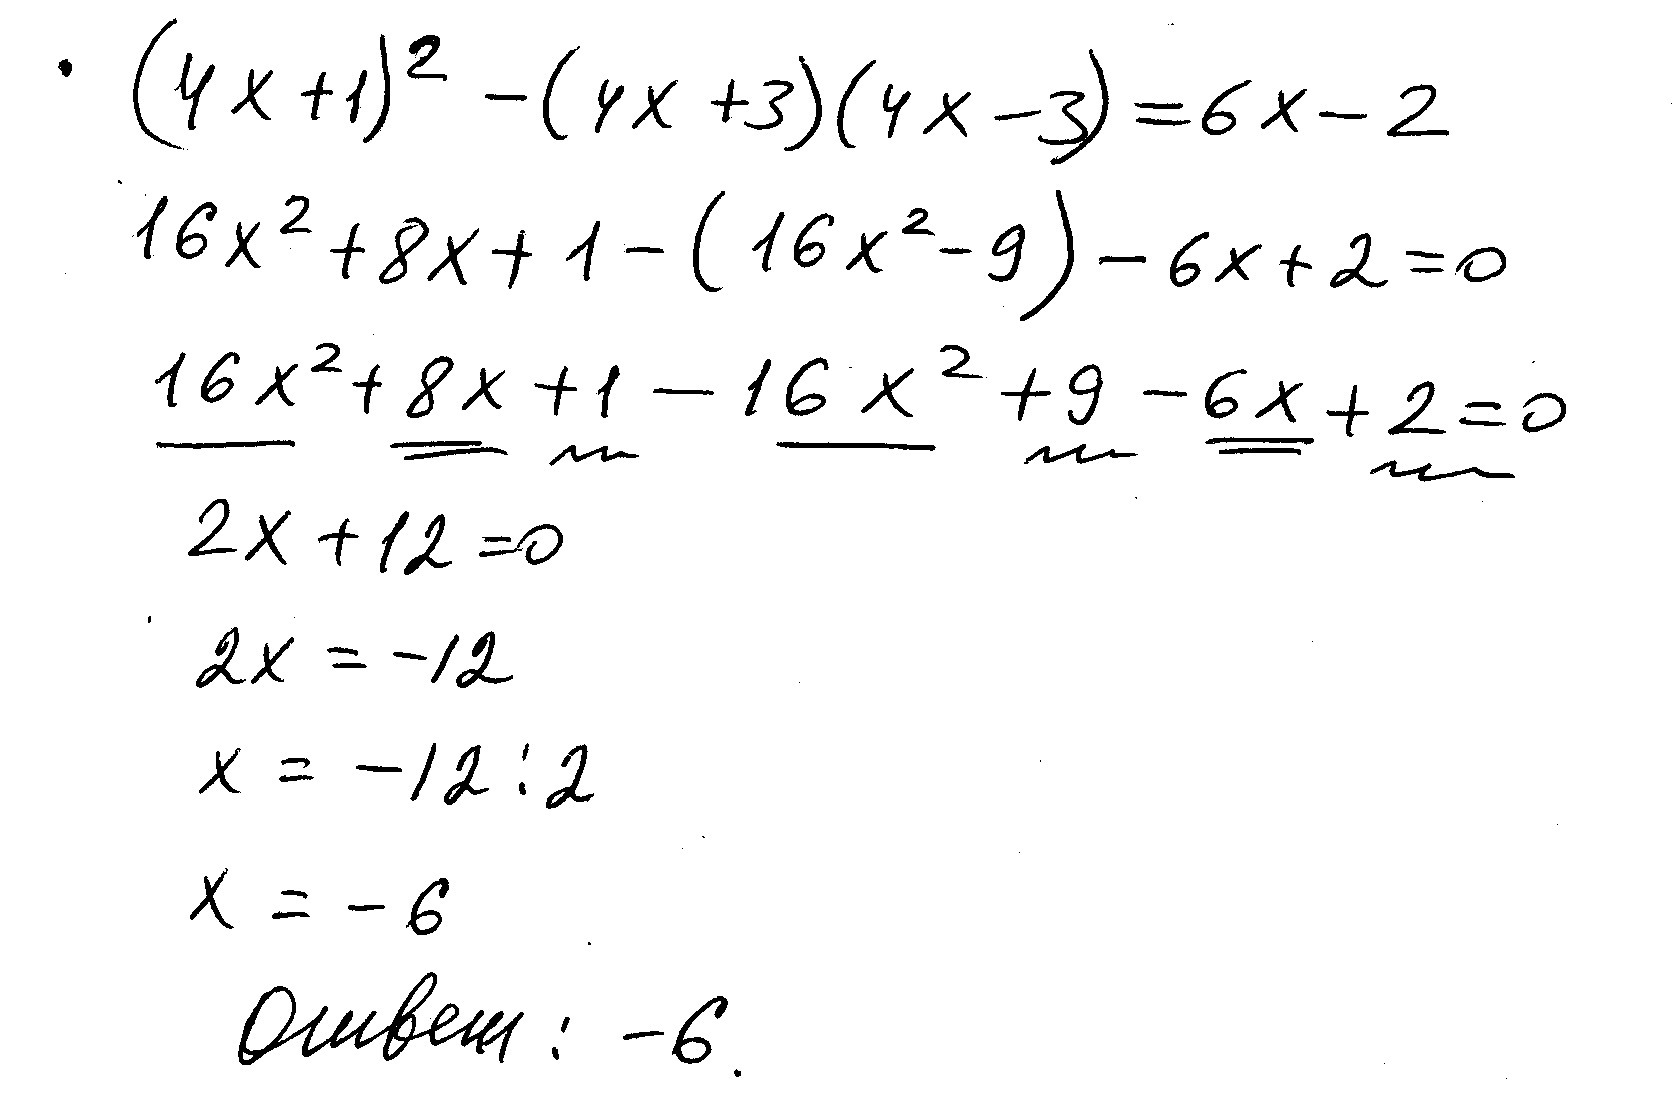 (4x+1)² - (4x+3)(4x-3) = 6x - 2
16x² + 8x + 1 - (16x² - 9) - 6x + 2 = 0
16x² + 8x + 1 - 16x² + 9 - 6x + 2 = 0
2x + 12 = 0
2x = -12
x = -12 : 2
x = -6
Ответ: -6.